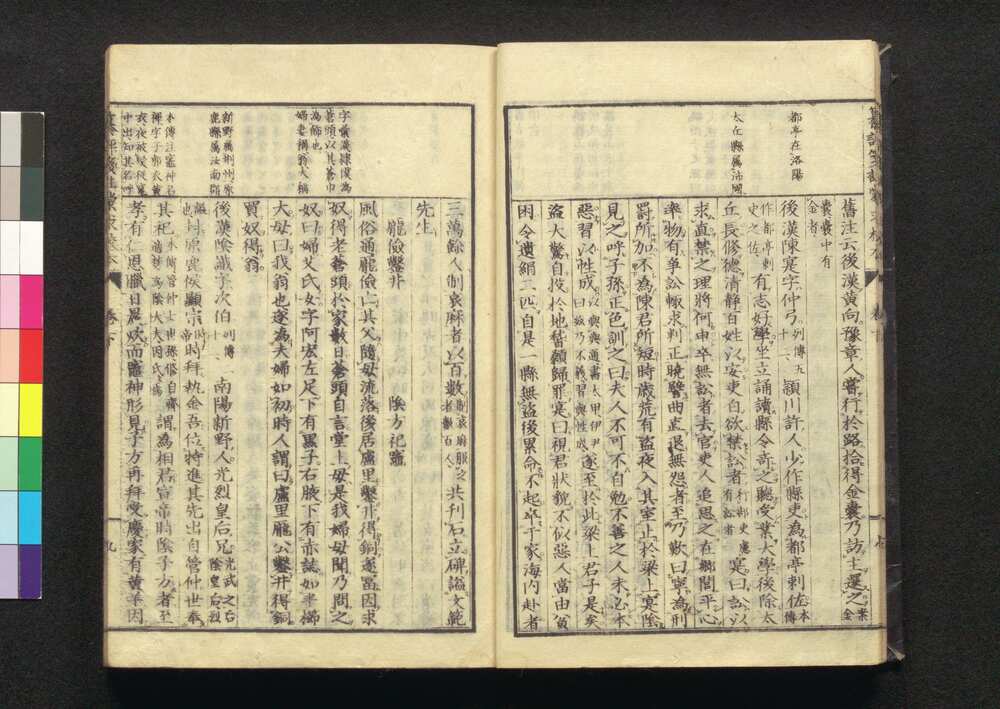 都亭在洛陽
太丘縣屬沛國
舊注云後漢黃向豫章人嘗行於路拾得金囊乃訪主還之
囊囊中有
金者
後漢陳寔字仲弓
潁川許人少作縣吏為都亭刺佐
作都亭刺
史之佐
有志好學坐立誦讀縣令奇之聽受業大學後除太
丘長修德清靜百姓以安吏白欲禁訟者
寔曰訟以
求直禁之理將何申卒無訟者去官吏人追思之在鄉閭平心
率物有爭訟輙求判正曉譬曲直退無怨者至乃歎曰寧為刑
罰所加不為陳君所短時歲荒有盜夜入其室止於梁上寔陰
見之呼子孫正色訓之曰夫人不可不自勉不善之人未必本
惡習以性成
遂至於此梁上君子是矣
盜大驚自投於地稽顙歸罪寔曰視君狀貌不似惡人當由貧
困令遺絹二匹自是一縣無盜後累命不起卒于家海內赴者
三萬餘人制衰麻者以百數
共刊石立碑謚文範
先生
龐儉鑿井
陰方祀竈
風俗通龐儉亡其父隨母流落後居廬里鑿井得銅遂富因求
奴得老蒼頭於家數日蒼頭自言堂上母是我婦母聞乃問之
奴曰婦艾氏女字阿宏左足下有黑子右腋下有赤誌如半櫛
大母曰我翁也遂為夫婦如初時人謂曰廬里龐公鑿井得銅
買奴得翁
後漢陰識字次伯
南陽新野人光烈皇后兄
封原鹿侯顯宗
時拜執金吾位特進其先出自管仲世奉
其祀
謂為相君宣帝時陰子方者至
孝有仁恩臘日晨炊而竈神形見子方再拜受慶家有黃羊因